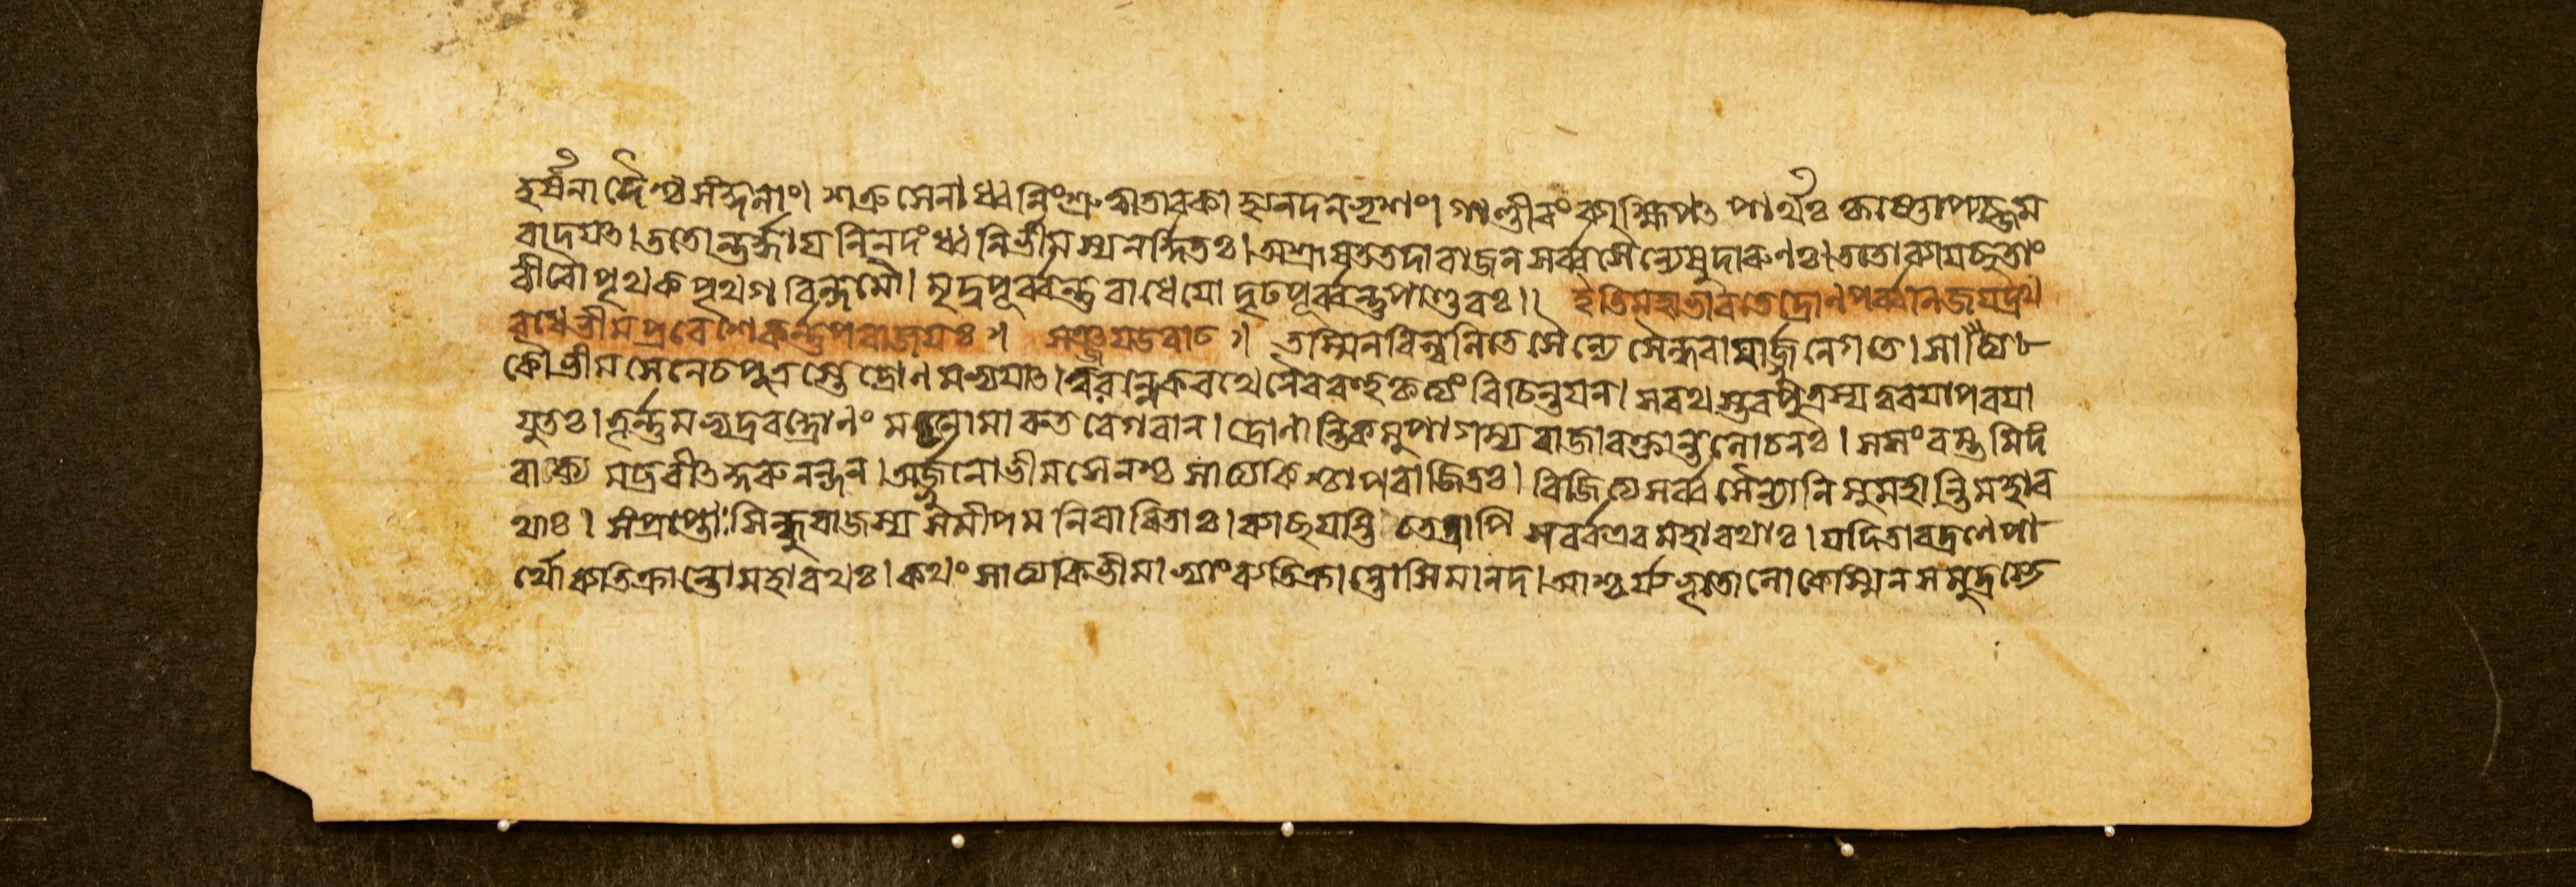 হর্ষনার্দৈশ্চ সৈন্দনাং। শত্রুসেনাধ্বনিং শ্রুত্বা তাবকা হ্যনদন ভৃশং। গাণ্ডীবং ব্যাক্ষিপৎ পার্থঃ
বাদয়ৎ। ততোন্তর্দ্ধায় নিনদং ধ্বনির্ভীমস্য নর্দ্দিতঃ। অশ্রূয়ত তদা বাজন সর্ব্বসৈন্যেষু দারুণঃ। ততো ব্যায়চ্ছতাং
বীরৌ পৃথক পৃথগবিন্দমৌ। মৃদুপূর্ব্বন্তু বাধেয়ো দৃঢপূর্ব্বন্তু পাণ্ডবঃ॥ ইতি মহাভাবতে দ্রোণপর্ব্বনি জয়দ্রথ
বধে ভীমপ্রবেশে কর্ন্নপবাজয়ঃ। সঞ্জয় উবাচ। তস্মিন বিলুলিতে সৈন্যে সৈন্ধবায়ার্জ্জুনে গতে। সাত্যে
কৌ ভীমসেনে চ পুত্রস্তে দ্রোণমভ্যয়াৎ। ত্বরন্নেকরথেনৈব বহুকৃত্যং বিচিন্তয়ন। স রথস্তব পুত্রস্য ত্বরয়া পরয়া
যুতঃ। তূর্ন্নমভ্যদ্রবদ্দ্রোণং মনোমারুতবেগবান। দ্রোণান্তিকমুপাগম্য রাজা রক্তান্তলোচনঃ। সসংরম্ভমিদং
বাক্যমব্রবীৎ কুরুনন্দন। অর্জ্জুনো ভীমসেনশ্চ সাত্যকিশ্চাপরাজিতঃ। বিজিত্য সর্ব্বসৈন্যানি সুমহান্তি মহার
থাঃ। সংপ্রাপ্তাঃ সিন্ধুরাজস্য সমীপমনিবারিতাঃ। ব্যায়চ্ছন্তি তত্রাপি সর্ব্ব এব মহারথাঃ। যদি তাবদ্রণে পা
র্থো ব্যতিক্রান্তো মহারথঃ। কথং সাত্যকিভীমাভ্যাং ব্যতিক্রান্তোসি মানদ। আশ্চর্য্যভূতং লোকেস্মিন সমুদ্রস্যে